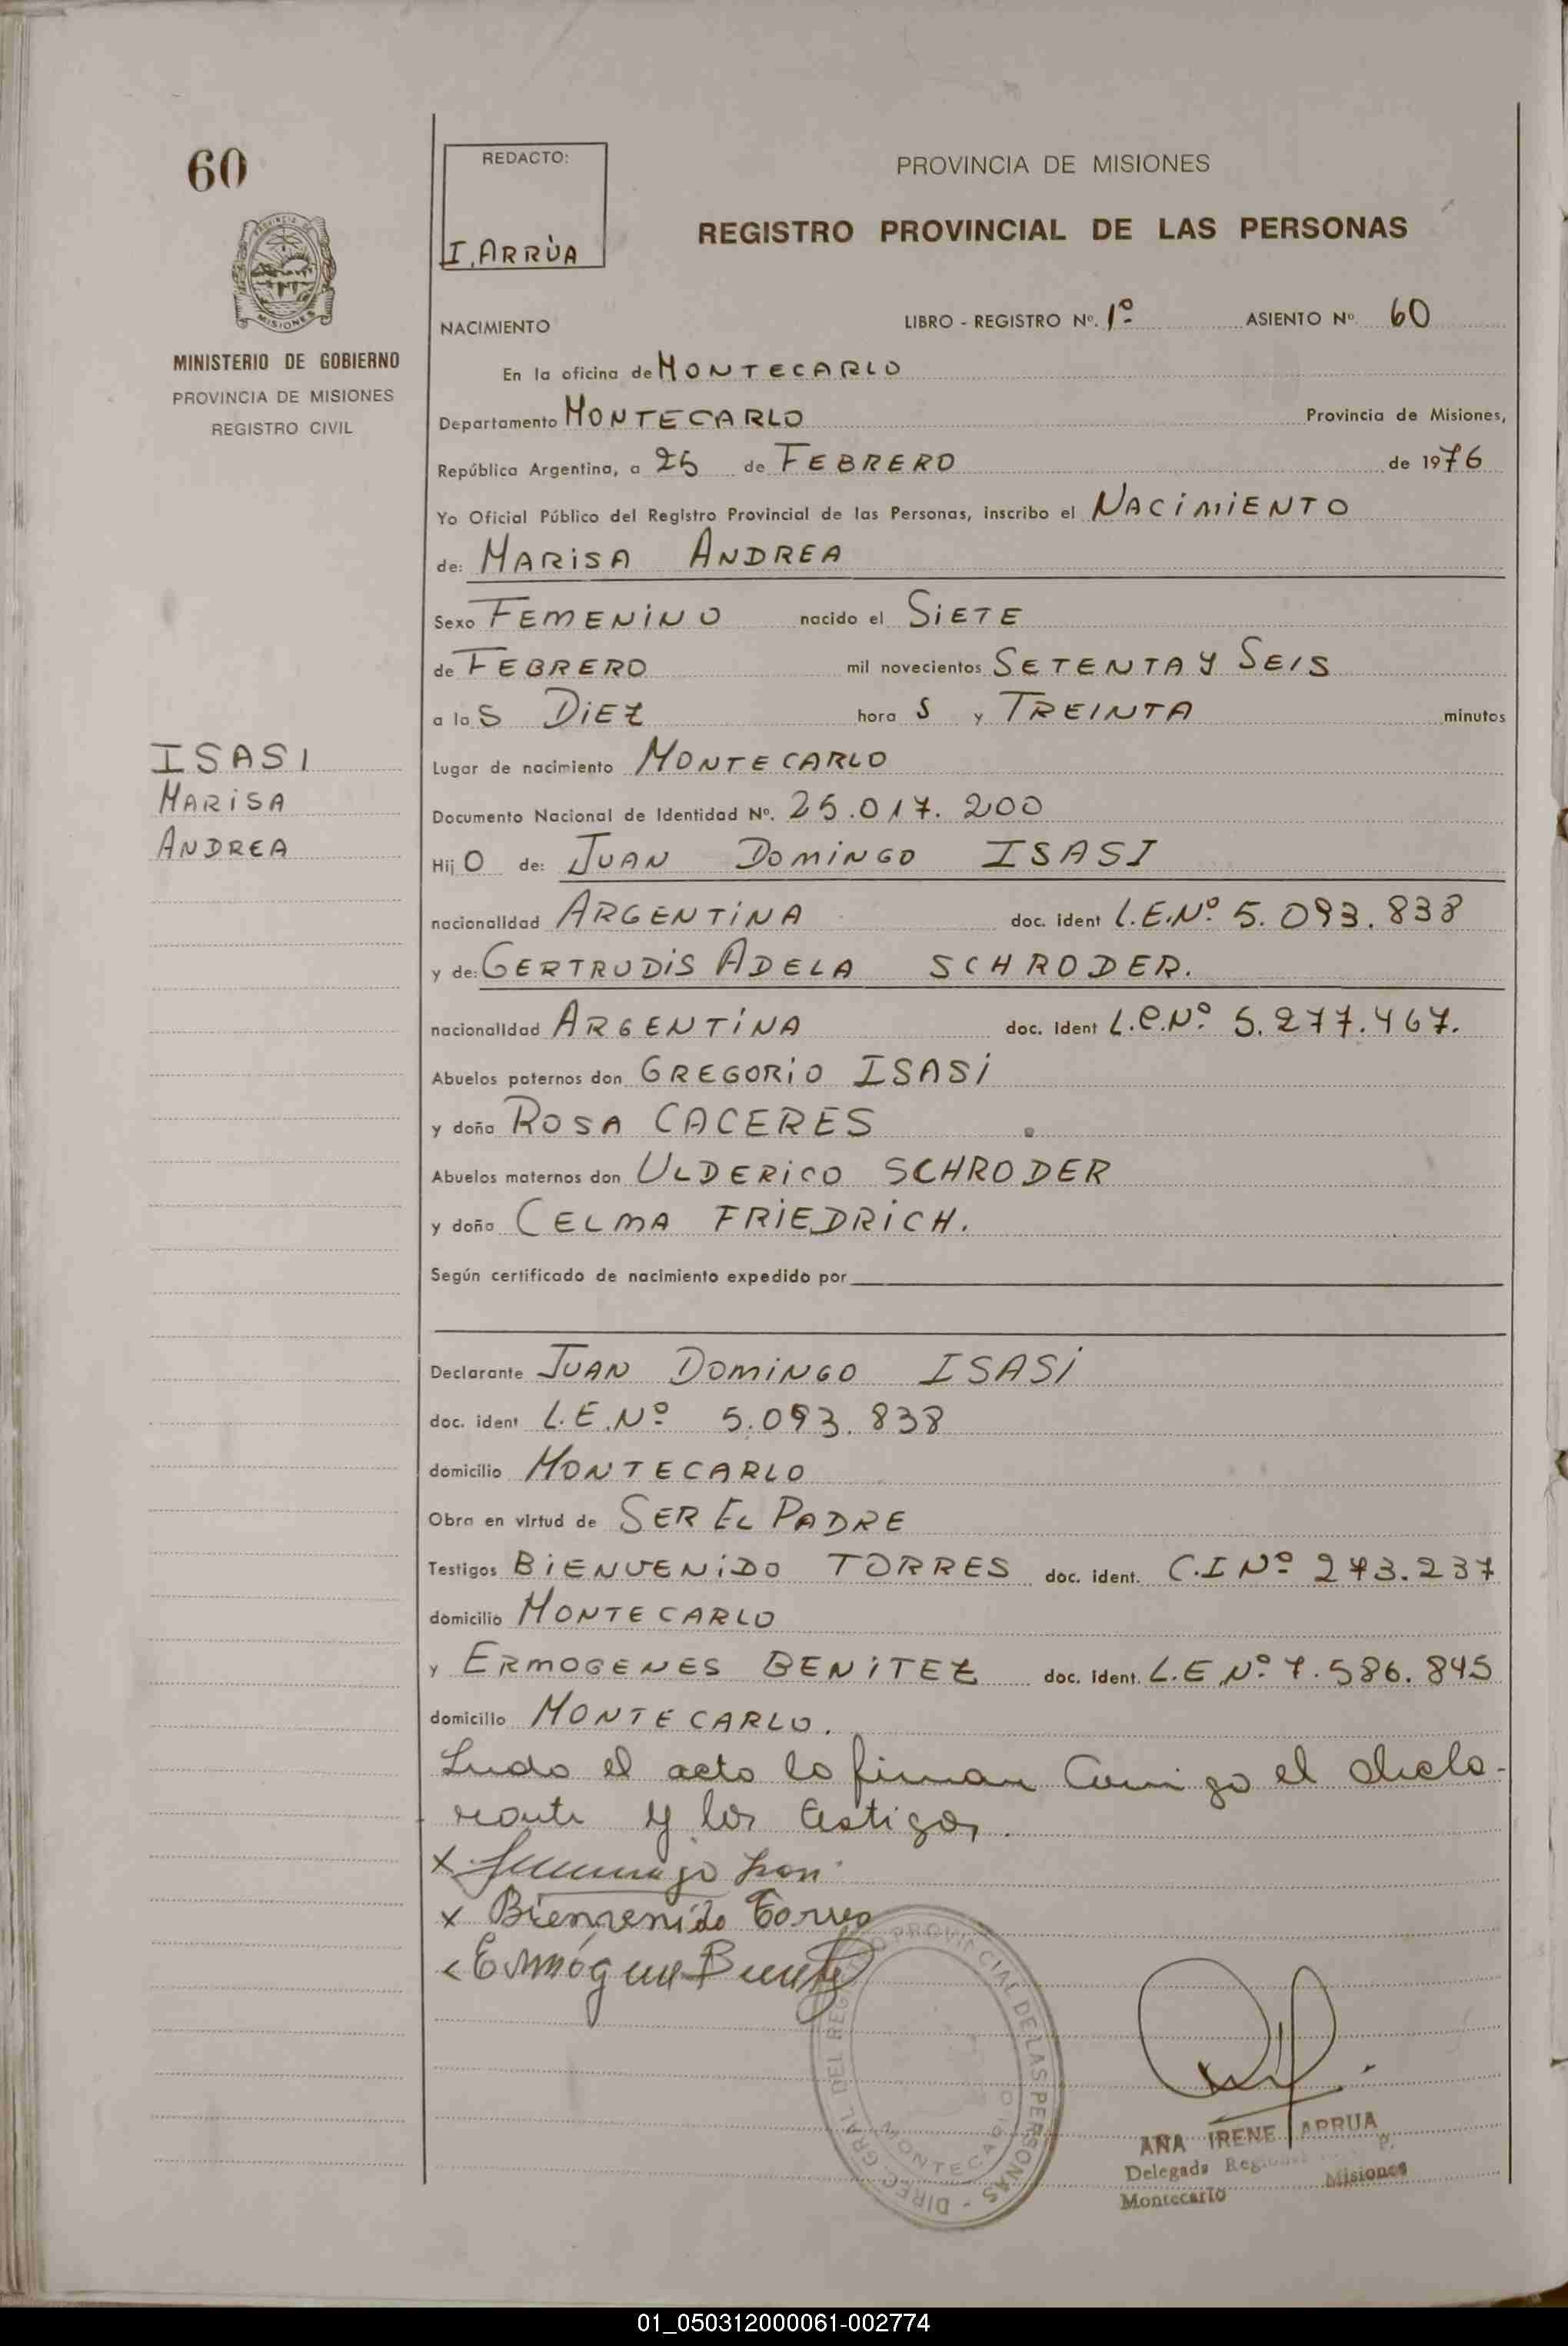 60
REDACTO:
I. ARRÙA
PROVINCIA DE MISIONES
REGISTRO PROVINCIAL DE LAS PERSONAS
PROVINCIA DE
MISIONES
MINISTERIO DE GOBIERNO
PROVINCIA DE MISIONES
REGISTRO CIVIL
NACIMIENTO LIBRO - REGISTRO Nº. 1º ASIENTO Nº 60
En la oficina de MONTECARLO
Departamento MONTECARLO Provincia de Misiones,
República Argentina, a 25 de FEBRERO de 1976
Yo Oficial Público del Registro Provincial de las Personas, inscribo el NACIMIENTO
de: MARISA ANDREA
Sexo FEMENINO nacido el SIETE
de FEBRERO mil novecientos SETENTA Y SEIS
a la S DIEZ hora S y TREINTA minutos
Lugar de nacimiento MONTECARLO
ISASI
MARISA
ANDREA
Documento Nacional de Identidad Nº. 25.017.200
Hij O de: JUAN DOMINGO ISASI
nacionalidad ARGENTINA doc. ident L.E.Nº 5.093.838
y de: GERTRUDIS ADELA SCHRODER.
nacionalidad ARGENTINA doc. ident L.C.Nº 5.277.467.
Abuelos paternos don GREGORIO ISASI
y doña ROSA CACERES
Abuelos maternos don ULDERICO SCHRODER
y doña CELMA FRIEDRICH.
Según certificado de nacimiento expedido por
Declarante JUAN DOMINGO ISASI
doc. ident L.E.Nº 5.093.838
domicilio MONTECARLO
Obra en virtud de SER EL PADRE
Testigos BIENVENIDO TORRES doc. ident. C.I Nº 273.237
domicilio MONTECARLO
y ERMOGENES BENITEZ doc. ident. L.E Nº 7.586.845
domicilio MONTECARLO.
Leido el acto lo firman Comigo el decla-
rante y los testigos.
x
x Bienvenido Torres
Ermógenes Benitez
DIREC. GRAL DEL REGISTRO PROVINCIAL DE LAS PERSONAS -
MONTECARLO
ANA IRENE ARRUA
Delegada Misiones
Montecarlo
01_050312000061-002774